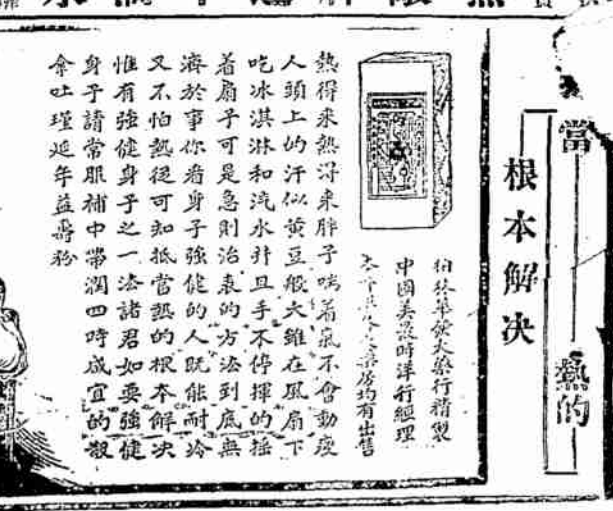 當 熱的
根本解决
大藥行精製
中國美最時洋行經理
藥房均有出售
熱得来熱得来胖子喘着氣不會動瘦
人頭上的汗似黄豆般大雖在風扇下
吃冰淇淋和汽水并且手不停揮的摇
着扇子可是急則治表的方法到底無
濟於事你看身子強健的人既能耐冷
又不怕熱從可知抵當熱的根本解决
惟有強健身子之一法諸君如要強健
身子請常服補中帶潤四時咸宜的散
拿吐瑾延年益壽粉